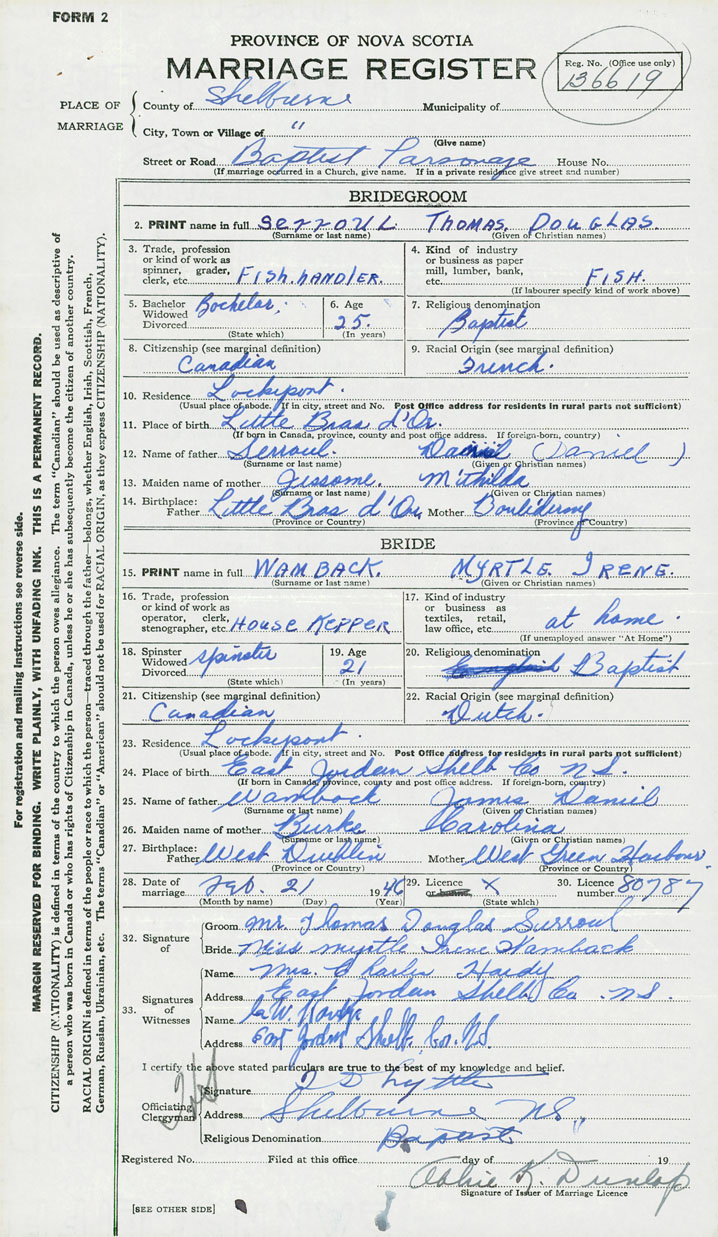 FORM 2
PROVINCE OF NOVA SCOTIA
MARRIAGE REGISTER
Reg. No. (Office use only)
136619
PLACE OF MARRIAGE
County of Shelburne Municipality of
City, Town or Village of "
(Give name)
Street or Road Baptist Parsonage House No.
(If marriage occurred in a Church, give name. If in a private residence give street and number)
BRIDEGROOM
2. PRINT name in full SERROUL THOMAS. DOUGLAS.
(Surname or last name) (Given of Christian names)
3. Trade, profession or kind of work as spinner, grader, clerk, etc. FISH.HANDLER.
4. Kind of industry or business as paper mill, lumber, bank, etc. FISH.
(If labourer specify kind of work above)
5. Bachelor Widowed Divorced Bachelar.
(State which)
6. Age 25.
(In years)
7. Religious denomination
Baptist
8. Citizenship (see marginal definition)
Canadian
9. Racial Origin (see marginal definition)
French.
10. Residence Lockeport.
(Usual place of abode. If in city, street and No. Post Office address for residents in rural parts not sufficient)
11. Place of birth Little Bras d'Or
(If born in Canada, province, county and post office address. If foreign-born, country)
12. Name of father Serroul (Daniel)
(Surname or last name) (Given or Christian names)
13. Maiden name of mother Jessome. Mithilda
(Surname or last name) (Given or Christian names)
14. Birthplace: Father Little Bras d'Or Mother
(Province or Country) (Province or Country)
BRIDE
15. PRINT name in full WAMBACK. MYRTLE IRENE.
(Surname or last name) (Given or Christian names)
16. Trade, profession or kind of work as operator, clerk, stenographer, etc. HOUSE KEPPER
17. Kind of industry or business as textiles, retail, law office, etc. at home.
(If unemployed answer "At Home")
18. Spinster Widowed Divorced spinster
(State which)
19. Age 21
(In years)
20. Religious denomination
Baptist
21. Citizenship (see marginal definition)
Canadian
22. Racial Origin (see marginal definition)
Dutch.
23. Residence Lockeport.
(Usual place of abode. If in city, street and No. Post Office address for residents in rural parts not sufficient)
24. Place of birth East Jordan Shelb Co N.S.
(If born in Canada, province, county and post office address. If foreign-born, country)
25. Name of father Wamback James Daniel
(Surname or last name) (Given or Christian names)
26. Maiden name of mother Burke Carolina
(Surname or last name) (Given or Christian names)
27. Birthplace: Father West Dublin Mother West Green Harbour
(Province or Country) (Province or Country)
28. Date of marriage Feb. 21 1946
(Month by name) (Day) (Year)
29. Licence or banns X
(State which)
30. Licence number 80787
32. Signature of
Groom Mr. Thomas Douglas Surroul
Bride Miss Myrtle Irene Wamback
33. Signatures of Witnesses
Name Mrs. Charles Hardy
Address East Jordan Shelb Co. NS.
Name
Address East Jordan Shelb. Co. N.S.
I certify the above stated particulars are true to the best of my knowledge and belief.
Officiating Clergyman
Signature
Address Shelburne NS.
Religious Denomination Baptist
Registered No. Filed at this office day of 19
K. Dunlop
Signature of Issuer of Marriage Licence
[SEE OTHER SIDE]
For registration and mailing instructions see reverse side.
MARGIN RESERVED FOR BINDING. WRITE PLAINLY, WITH UNFADING INK. THIS IS A PERMANENT RECORD.
CITIZENSHIP (NATIONALITY) is defined in terms of the country to which the person owes allegiance. The term "Canadian" should be used as descriptive of
a person who was born in Canada or who has rights of Citizenship in Canada, unless he or she has subsequently become the citizen of another country.
RACIAL ORIGIN is defined in terms of the people or race to which the person—traced through the father—belongs, whether English, Irish, Scottish, French,
German, Russian, Ukrainian, etc. The terms "Canadian" or "American" should not be used for RACIAL ORIGIN, as they express CITIZENSHIP (NATIONALITY).